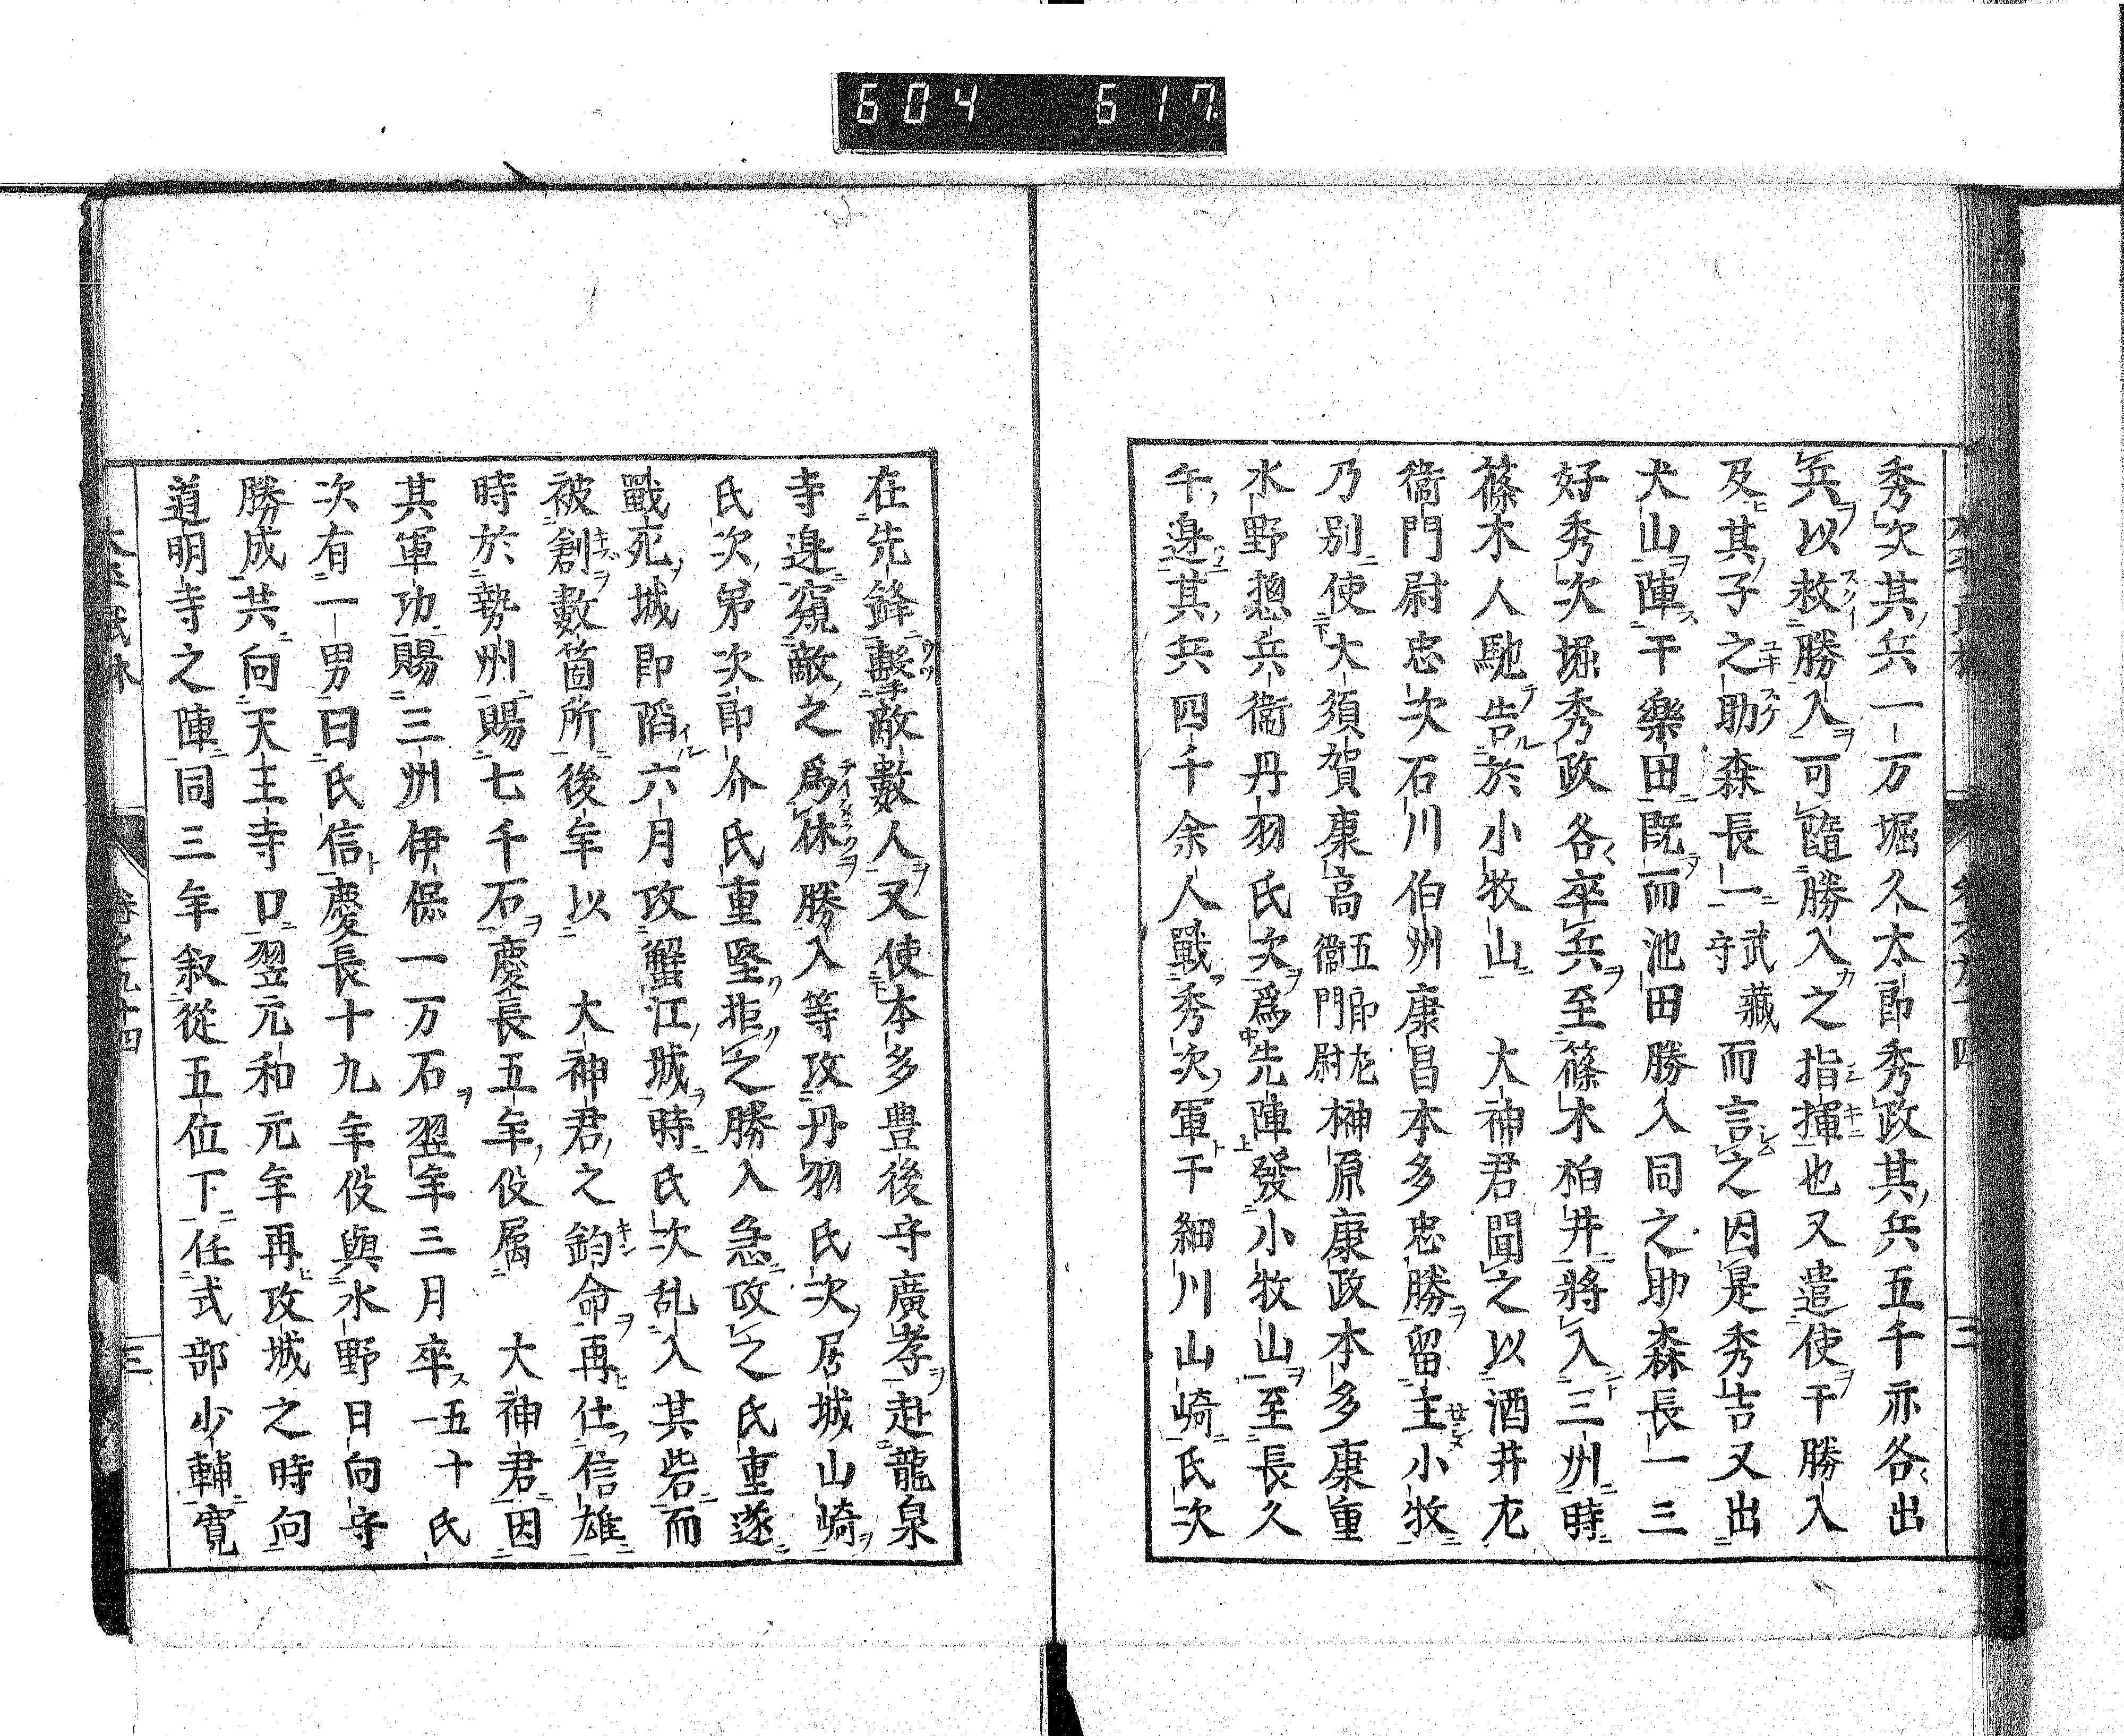 604 617
秀次其兵一万堀久太郎秀政其兵五千亦各出
兵以救勝入可隨勝入之指揮也又遣使于勝入
及其子之助森長一武藏守而言之因是秀吉又出
犬山陣于樂田既而池田勝入同之助森長一三
好秀次堀秀政各卒兵至篠木柏井將入三州時
篠木人馳告於小牧山 大神君聞之以酒井左
衞門尉忠次石川伯州康昌本多忠勝留主小牧
乃別使大須賀康高五郎左衞門尉榊原康政本多康重
水野惣兵衞丹羽氏次爲先陣發小牧山至長久
午邉其兵四千余人戰秀次軍于細川山崎氏次
在先鋒擊敵數人又使本多豊後守廣孝赴龍泉
寺邉窺敵之爲休勝入等攻丹羽氏次居城山崎
氏次弟次郎介氏重堅拒之勝入急攻之氏重遂
戰死城即陷六月攻蟹江城時氏次乱入其砦而
被創數箇所後年以 大神君之鈞命再仕信雄
時於勢州賜七千石慶長五年役属 大神君因
其軍功賜三州伊保一万石翌年三月卒五十一氏
次有一男曰氏信慶長十九年役與水野日向守
勝成共向天王寺口翌元和元年再攻城之時向
道明寺之陣同三年叙從五位下任式部少輔寛
卷之九十四
三